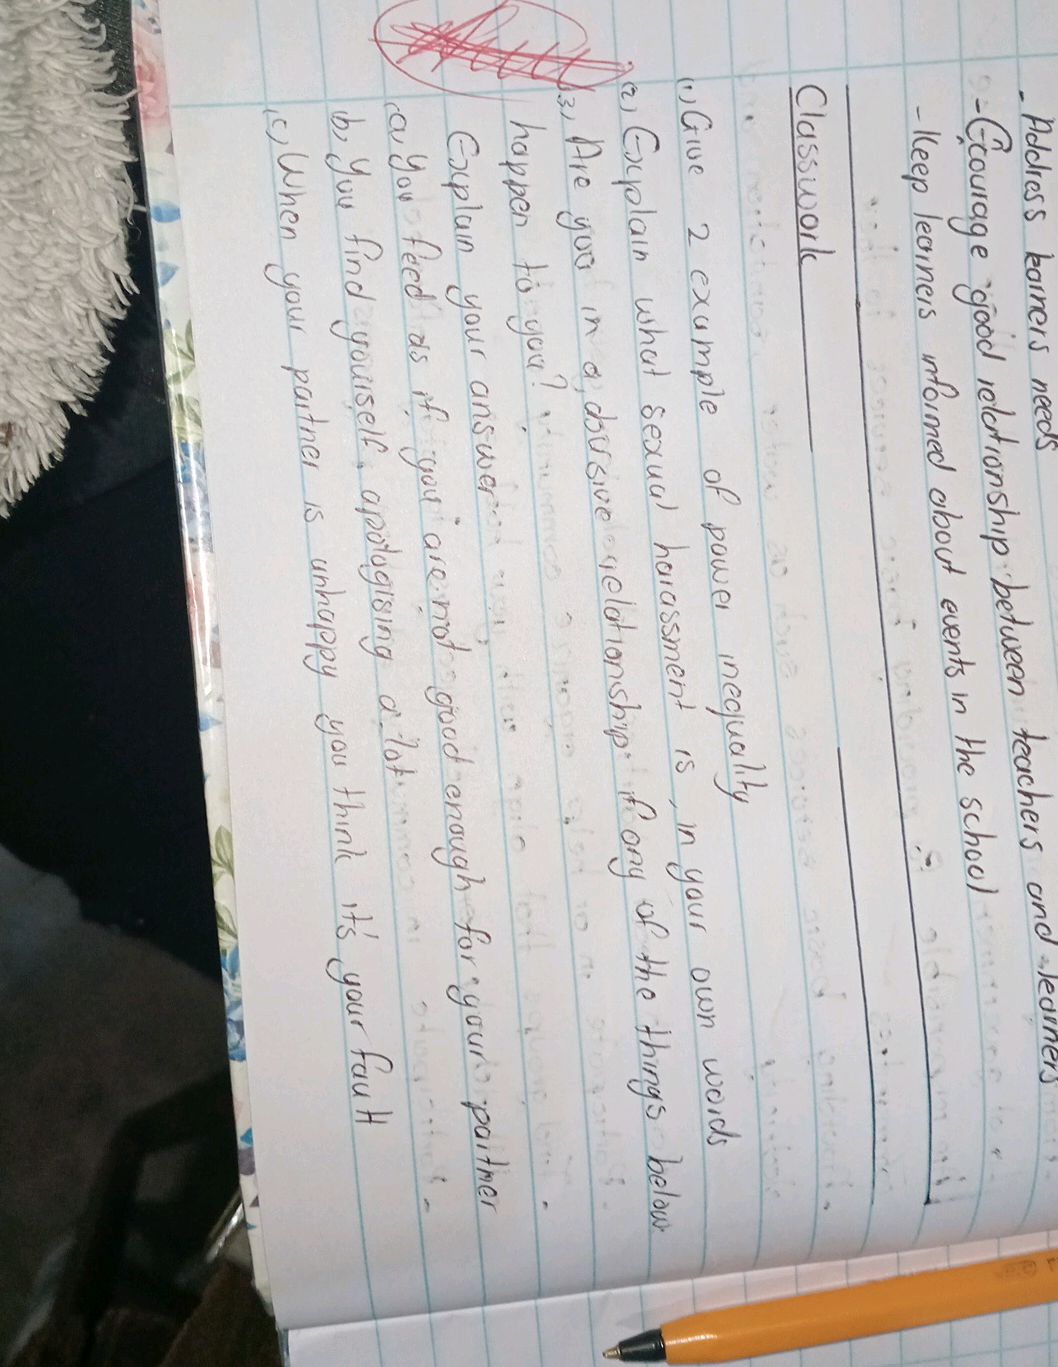 - Address learners needs
- Encourage good relationship between teachers and learners
- Keep learners informed about events in the school
Classwork
1, Give 2 example of power inequality
2, Explain what sexual harassment is, in your own words
3, Are you in a abusive relationship if any of the things below
happen to you?
Explain your answer
a, You feed as if you are not good enough for your partner
b, you find yourself apologising a lot
c, When your partner is unhappy you think it's your fault